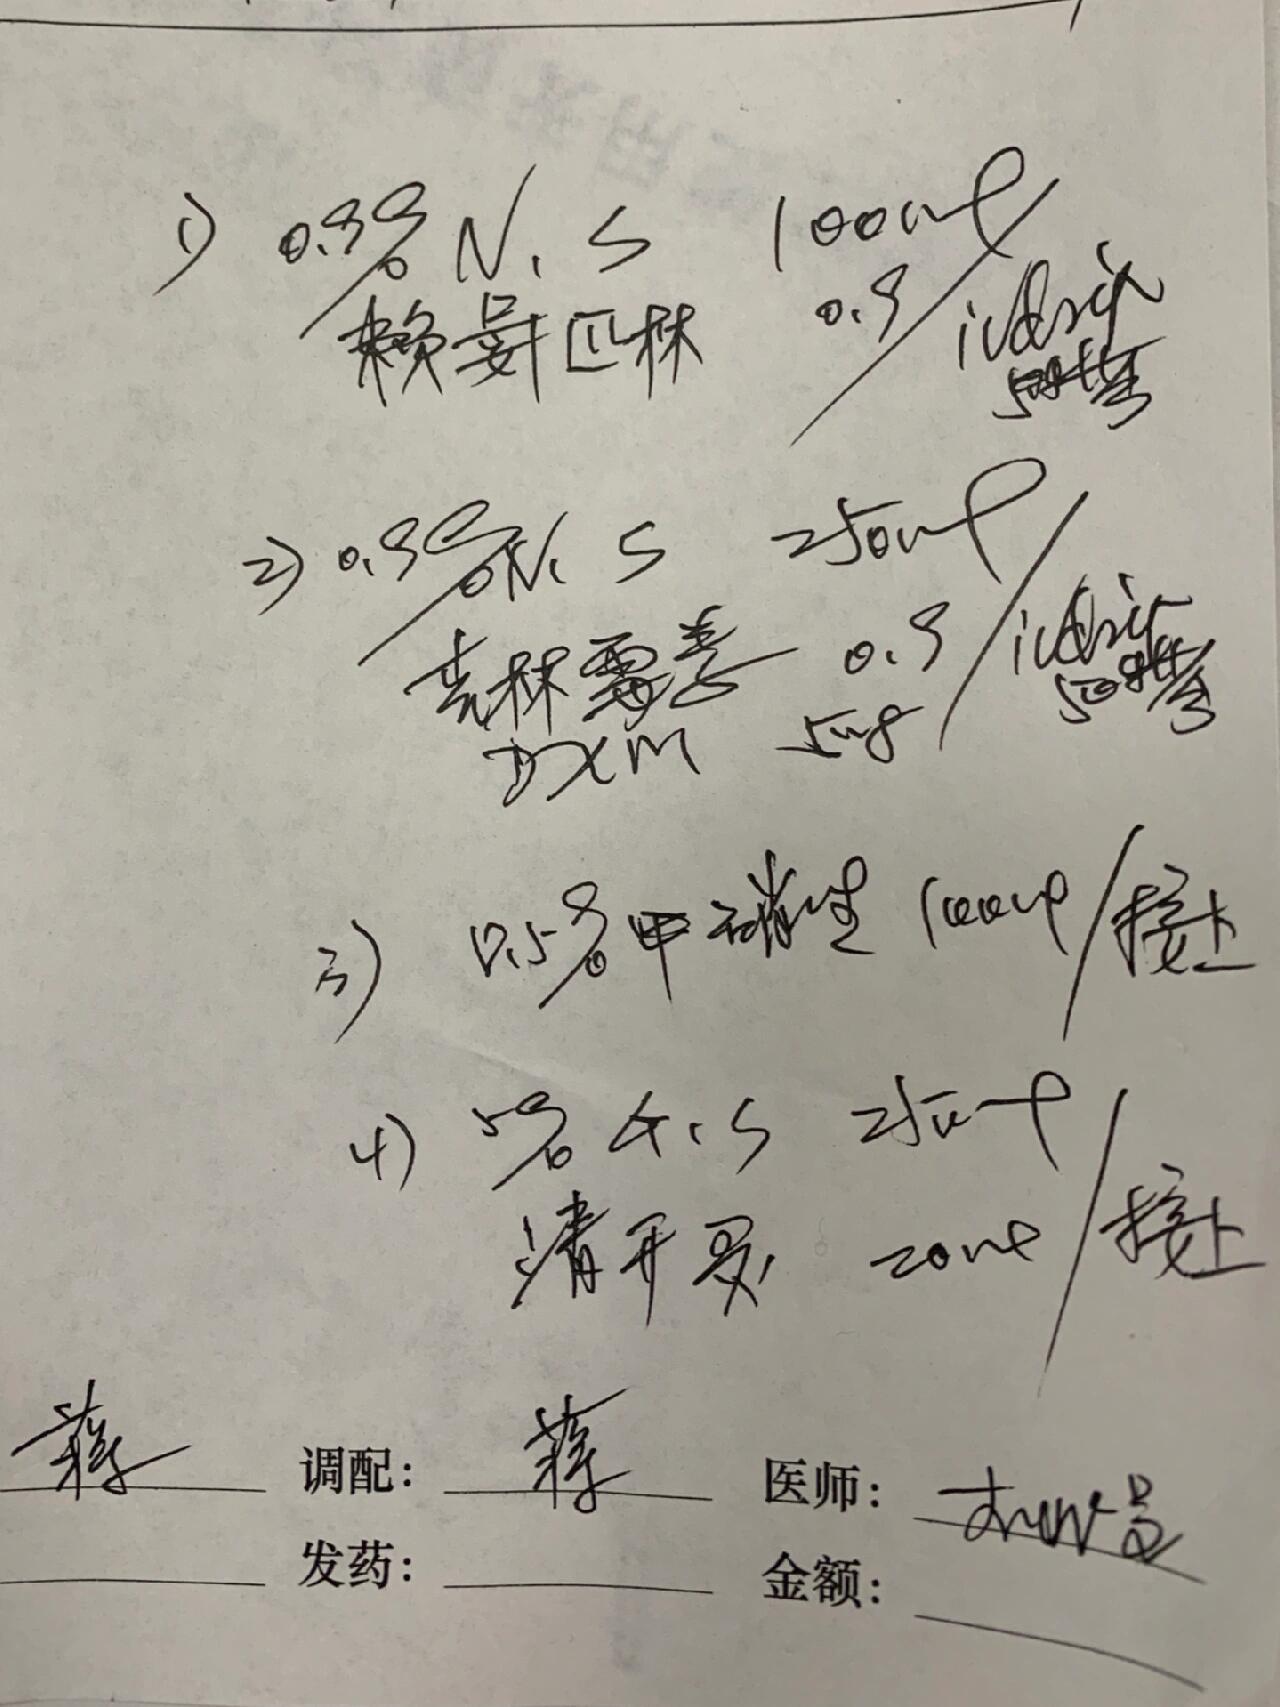 1) 0.9% N.S 100ml
赖氨匹林 0.9 ivdrip
50滴/分
2) 0.9% N.S 250ml
克林霉素 0.9 ivdrip
DXM 5mg 50滴/分
3) 0.5% 甲硝唑 100ml 接上
4) 5% G.S 250ml
清开灵 20ml 接上
蒋 调配: 蒋 医师:
发药: 金额: